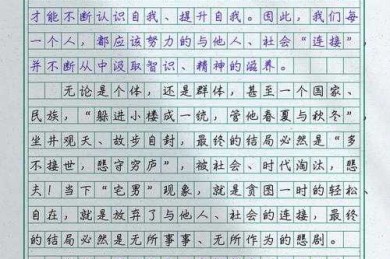 才能不断认识自我、提升自我。因此，我们每
一个人，都应该努力的与他人、社会“连接”
并不断从中汲取智识、精神的滋养。
无论是个体，还是群体，甚至一个国家、
民族，“躲进小楼成一统，管他春夏与秋冬”，
坐井观天、故步自封，最终的结局必然是“多
不接世，悲守穷庐”，被社会、时代淘汰，悲
夫！当下“宅男”现象，就是贪图一时的轻松、
自在，就是放弃了与他人、社会的连接，最终
的结局必然是无所事事、无所作为的悲剧。